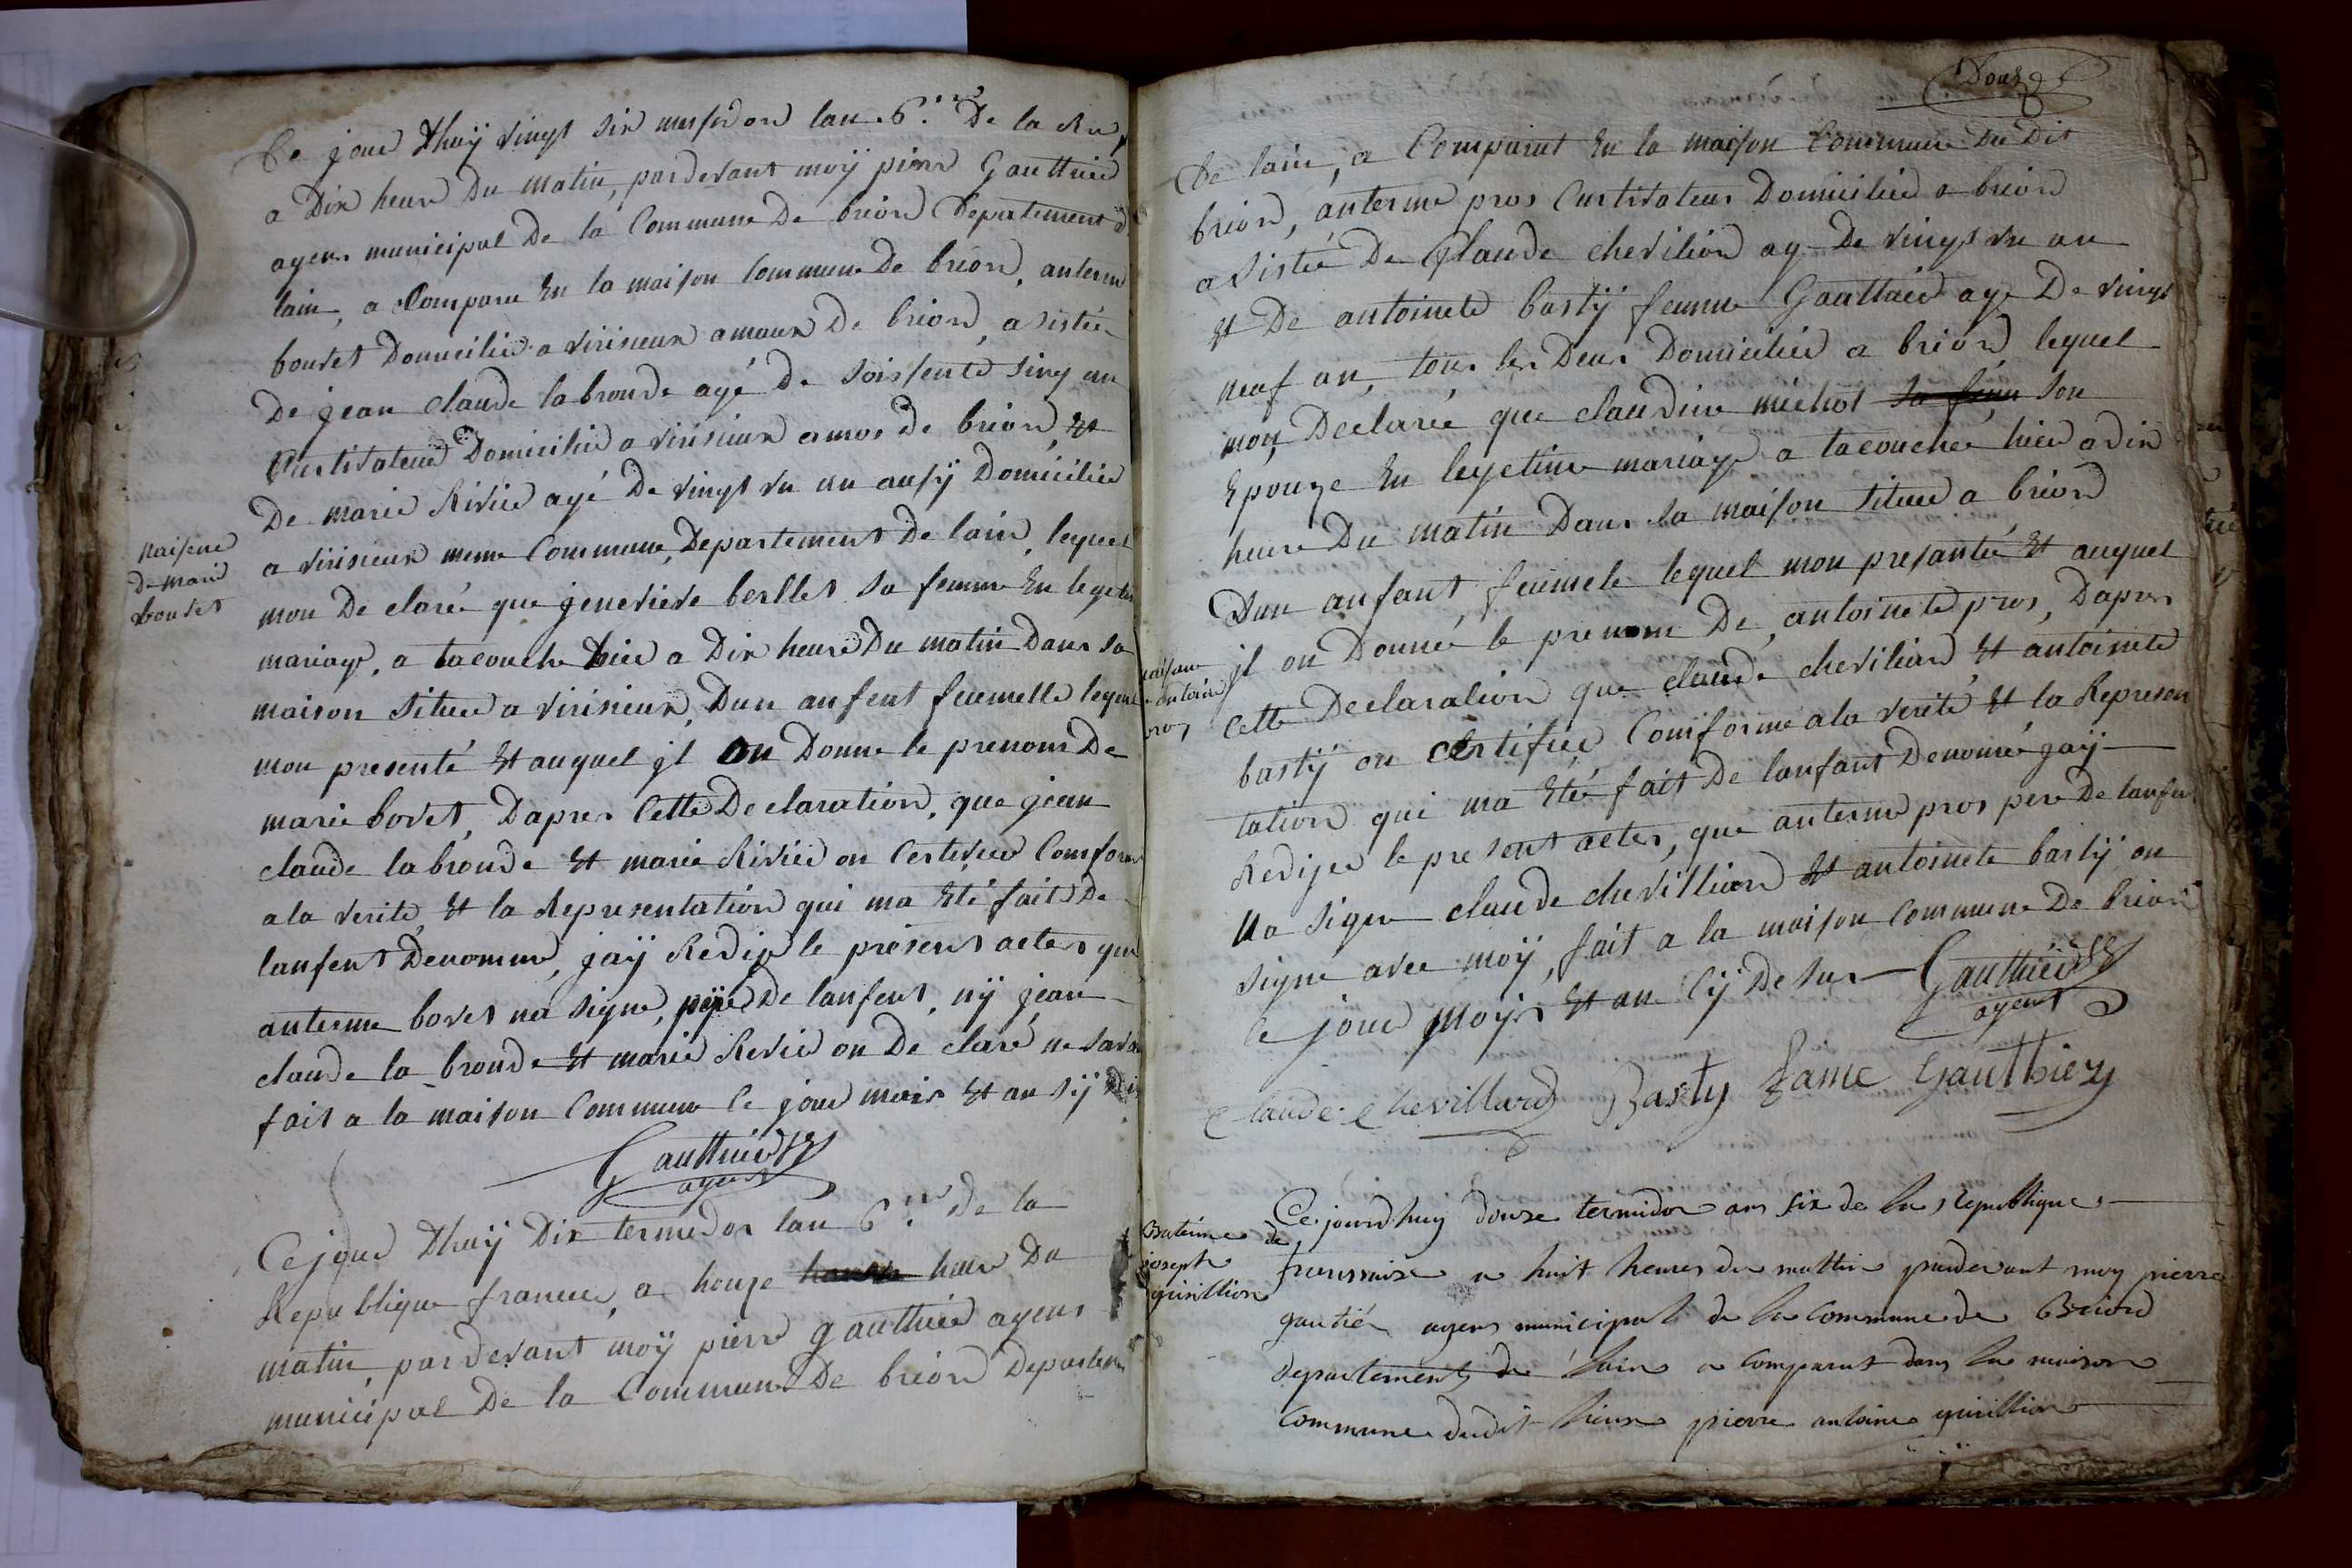 Ce jour d'huÿ vingt six messidor lan 6.me De la Rep
a Dix heure Du matin, pardevant moÿ pierre Gauthier
agent municipal De la Commune De briord Departement d
lain, a Comparu En la maison Commune De briord, anterme
bouvet Domicilié a virisieux amaux De briord, asistée
De jean claude labroude agé de soissente sinq an
Cultivateur Domicilié a virisieux amos de briord, Et
De marie Rivier agé De vingt un an ausÿ Domiciliée
a virisieux meme Commune, Departement De lain, lequel
mon De claré que genevieve berllet sa femme En legetim
mariage, a tacouche hier a Dix heure Du matin Dans sa
maison situee a virisieux, Dun anfent feumelle lequel
mon presenté Et auquel jl on Donne le prenom De
marie bovet, Dapres Cette Declaration, que jean
claude labroude Et marie Rivier on Certivier Comforme
a la verite, Et la Representation qui ma Eté fait De
lanfent Denomme, jaÿ Redije le present acter que
anterme bovet na signe, pere De lanfent, nÿ jean
claude la broude Et marie Rivier on De claré ne savoi
fait a la maison Commune le jour mois Et an sÿ de
Gauthier
agent
naisence
De marie
bouvet
Ce jour d'huÿ Dix termedor lan 6.me de la
Republique francee, a honze heure Du
matin, pardevant moÿ pierre gauthier agent
municipal De la Commune De briord Departem
Douze
De lain, a Comparut En la maison Commune Du Dit
briord, anterme pros Cultivateur Domicilié a briord
asistée De Claude chevilion ag De vingt un an
Et De antoinete bastÿ femme Gauthier age De vingt
neuf an, tous les Deux Domicilié a briord, lequel
mon Declarée que claudine michot sa fem son
Epouze En legetime mariage a tacouchée hier a dix
heure Du matin Dans sa maison situee a briord
Dun anfant, feumele lequel mon presantée Et auquel
jl on Donnée le prenom De, antoinete pros, Dapres
Cette Declaration que claude cheviliard Et antoinete
bastÿ on Certifiée Comforme a la verité Et la Represen
tation qui ma Eté fait De lanfant Denomé jaÿ
Redijee le present acter, que anterme pros pere De lanfen
Na signe claude chevillion Et antoinete bastÿ on
signe avec moÿ, fait a la maison Commune De briord
le jour moÿs Et an Cÿ De sus Gauthier
agent
Claude chevillard Basty fame Gauthiez
naisance
antoine
pros
Batème de
joseph
quirillion
Ce jourd'huy douze termidor an six de la republique
francaise a huit heures du mattin pardevant moy pierre
gautié agent municipal de la Commune de Briord
departement de lain a Comparut dans la maison
Commune dudit lieux pierre antoine quirillion